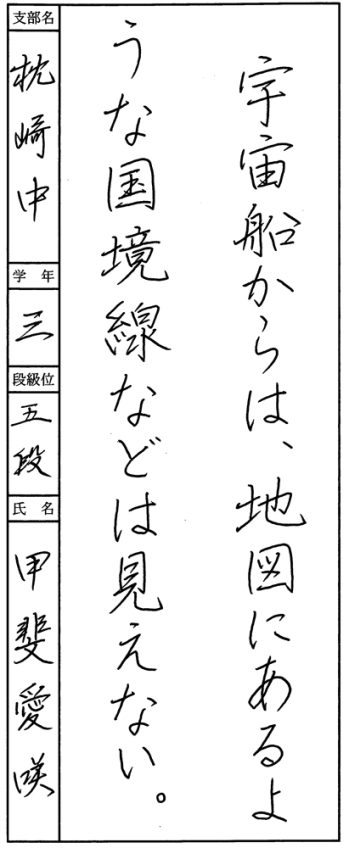 宇宙船からは、地図にあるよ
うな国境線などは見えない。
支部名
枕崎中
学年
三
段級位
五段
氏名
甲斐愛咲